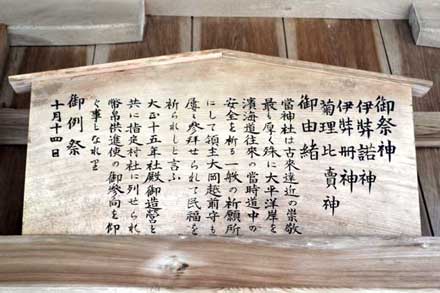 御祭神
伊弉諾神
伊弉册神
菊理比賣神
御由緒
當神社は古來遠近の崇敬
最も厚く殊に大平洋岸を
濱海道往來の當時道中の
安全を祈る一般の祈願所
にして領主大岡越前守も
屡々参拜せられて民福を
祈られしと言ふ
大正十五年社殿御造營と
共に指定村社に列せられ
幣帛供進使の御参向を仰
ぐ事となれり
御例祭
十月十四日